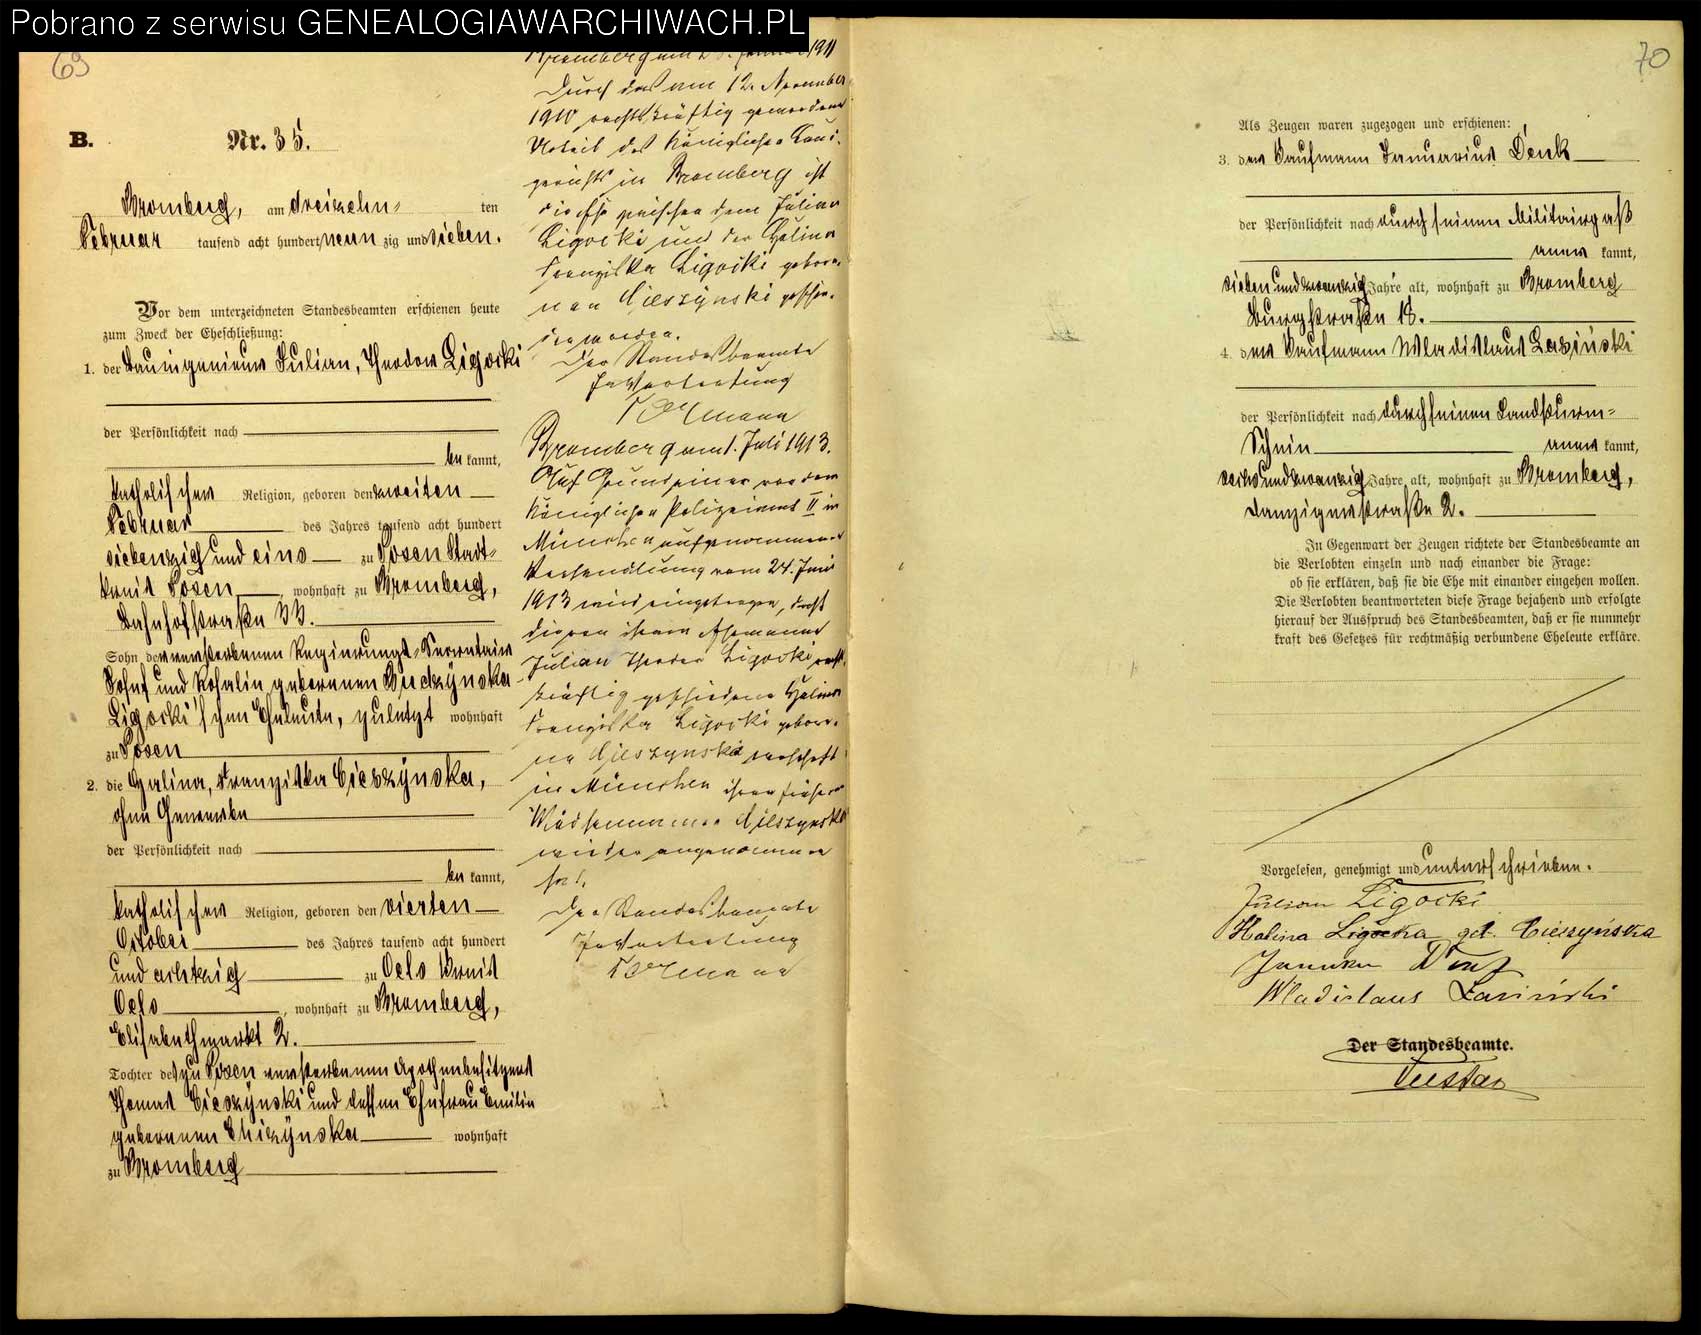 Pobrano z serwisu GENEALOGIAWARCHIWACH.PL
69
B.
Nr. 35.
Bromberg, am dreizehn-ten
Februar tausend acht hundert neunzig und sieben.
Vor dem unterzeichneten Standesbeamten erschienen heute
zum Zweck der Eheschließung:
1. der Bauingenieur Julian, Theodor Ligocki
der Persönlichkeit nach
bekannt,
katholischer Religion, geboren den zweiten
Februar des Jahres tausend acht hundert
siebenzig und eins zu Posen Stadt-
kreis Posen, wohnhaft zu Bromberg,
Bahnhofstraße 33.
Sohn der verstorbenen Regierungs-Secretair
Josef und Rosalia geborenen Budzynska
Ligocki'schen Eheleute, zuletzt wohnhaft
zu Posen
2. die Halina, Franziska Cieszynska,
ohne Gewerbe
der Persönlichkeit nach
bekannt,
katholischer Religion, geboren den vierten
October des Jahres tausend acht hundert
und achtzig zu Oels Kreis
Oels, wohnhaft zu Bromberg,
Elisabethmarkt 2.
Tochter des zu Posen verstorbenen Apothenbesitzers
Thomas Cieszynski und dessen Ehefrau Emilie
geborenen wohnhaft
zu Bromberg
Bromberg am Januar 1911
Durch das am 12. November
1910 rechtskräftig gewordene
Urteil des Königlichen Land-
gerichts in Bromberg ist
die Ehe zwischen dem Julian
Ligocki und der Halina
Franziska Ligocki gebore-
nen Cieszynski geschie-
den worden.
Der Standesbeamte
In Vertretung
Bromberg am 1. Juli 1913.
Auf Grund einer vor dem
Königlichen Polizeiamt II in
München aufgenommenen
Verhandlung vom 24. Juni
1913 wird eingetragen, daß
die von ihrem Ehemanne
Julian Theodor Ligocki rechts-
kräftig geschiedene Halina
Franziska Ligocki gebore-
ne Cieszynski wohnhaft
in München ihren früheren
Mädchennamen Cieszynski
wieder angenommen
hat.
Der Standesbeamte
In Vertretung
70
Als Zeugen waren zugezogen und erschienen:
3. der Kaufmann Januarius Denk
der Persönlichkeit nach durch seinen Militairpaß
anerkannt,
sieben und zwanzig Jahre alt, wohnhaft zu Bromberg
Burgstraße 18.
4. der Kaufmann Wladislaus Lasinski
der Persönlichkeit nach durch seinen Landsturm-
Schein anerkannt,
sechs und zwanzig Jahre alt, wohnhaft zu Bromberg,
Danzigerstraße 2.
In Gegenwart der Zeugen richtete der Standesbeamte an
die Verlobten einzeln und nach einander die Frage:
ob sie erklären, daß sie die Ehe mit einander eingehen wollen.
Die Verlobten beantworteten diese Frage bejahend und erfolgte
hierauf der Ausspruch des Standesbeamten, daß er sie nunmehr
kraft des Gesetzes für rechtmäßig verbundene Eheleute erkläre.
Vorgelesen, genehmigt und unterschrieben.
Julian Ligocki
Halina Ligocka geb. Cieszyńska
Denk
Wladislaus Lasiński
Der Standesbeamte.